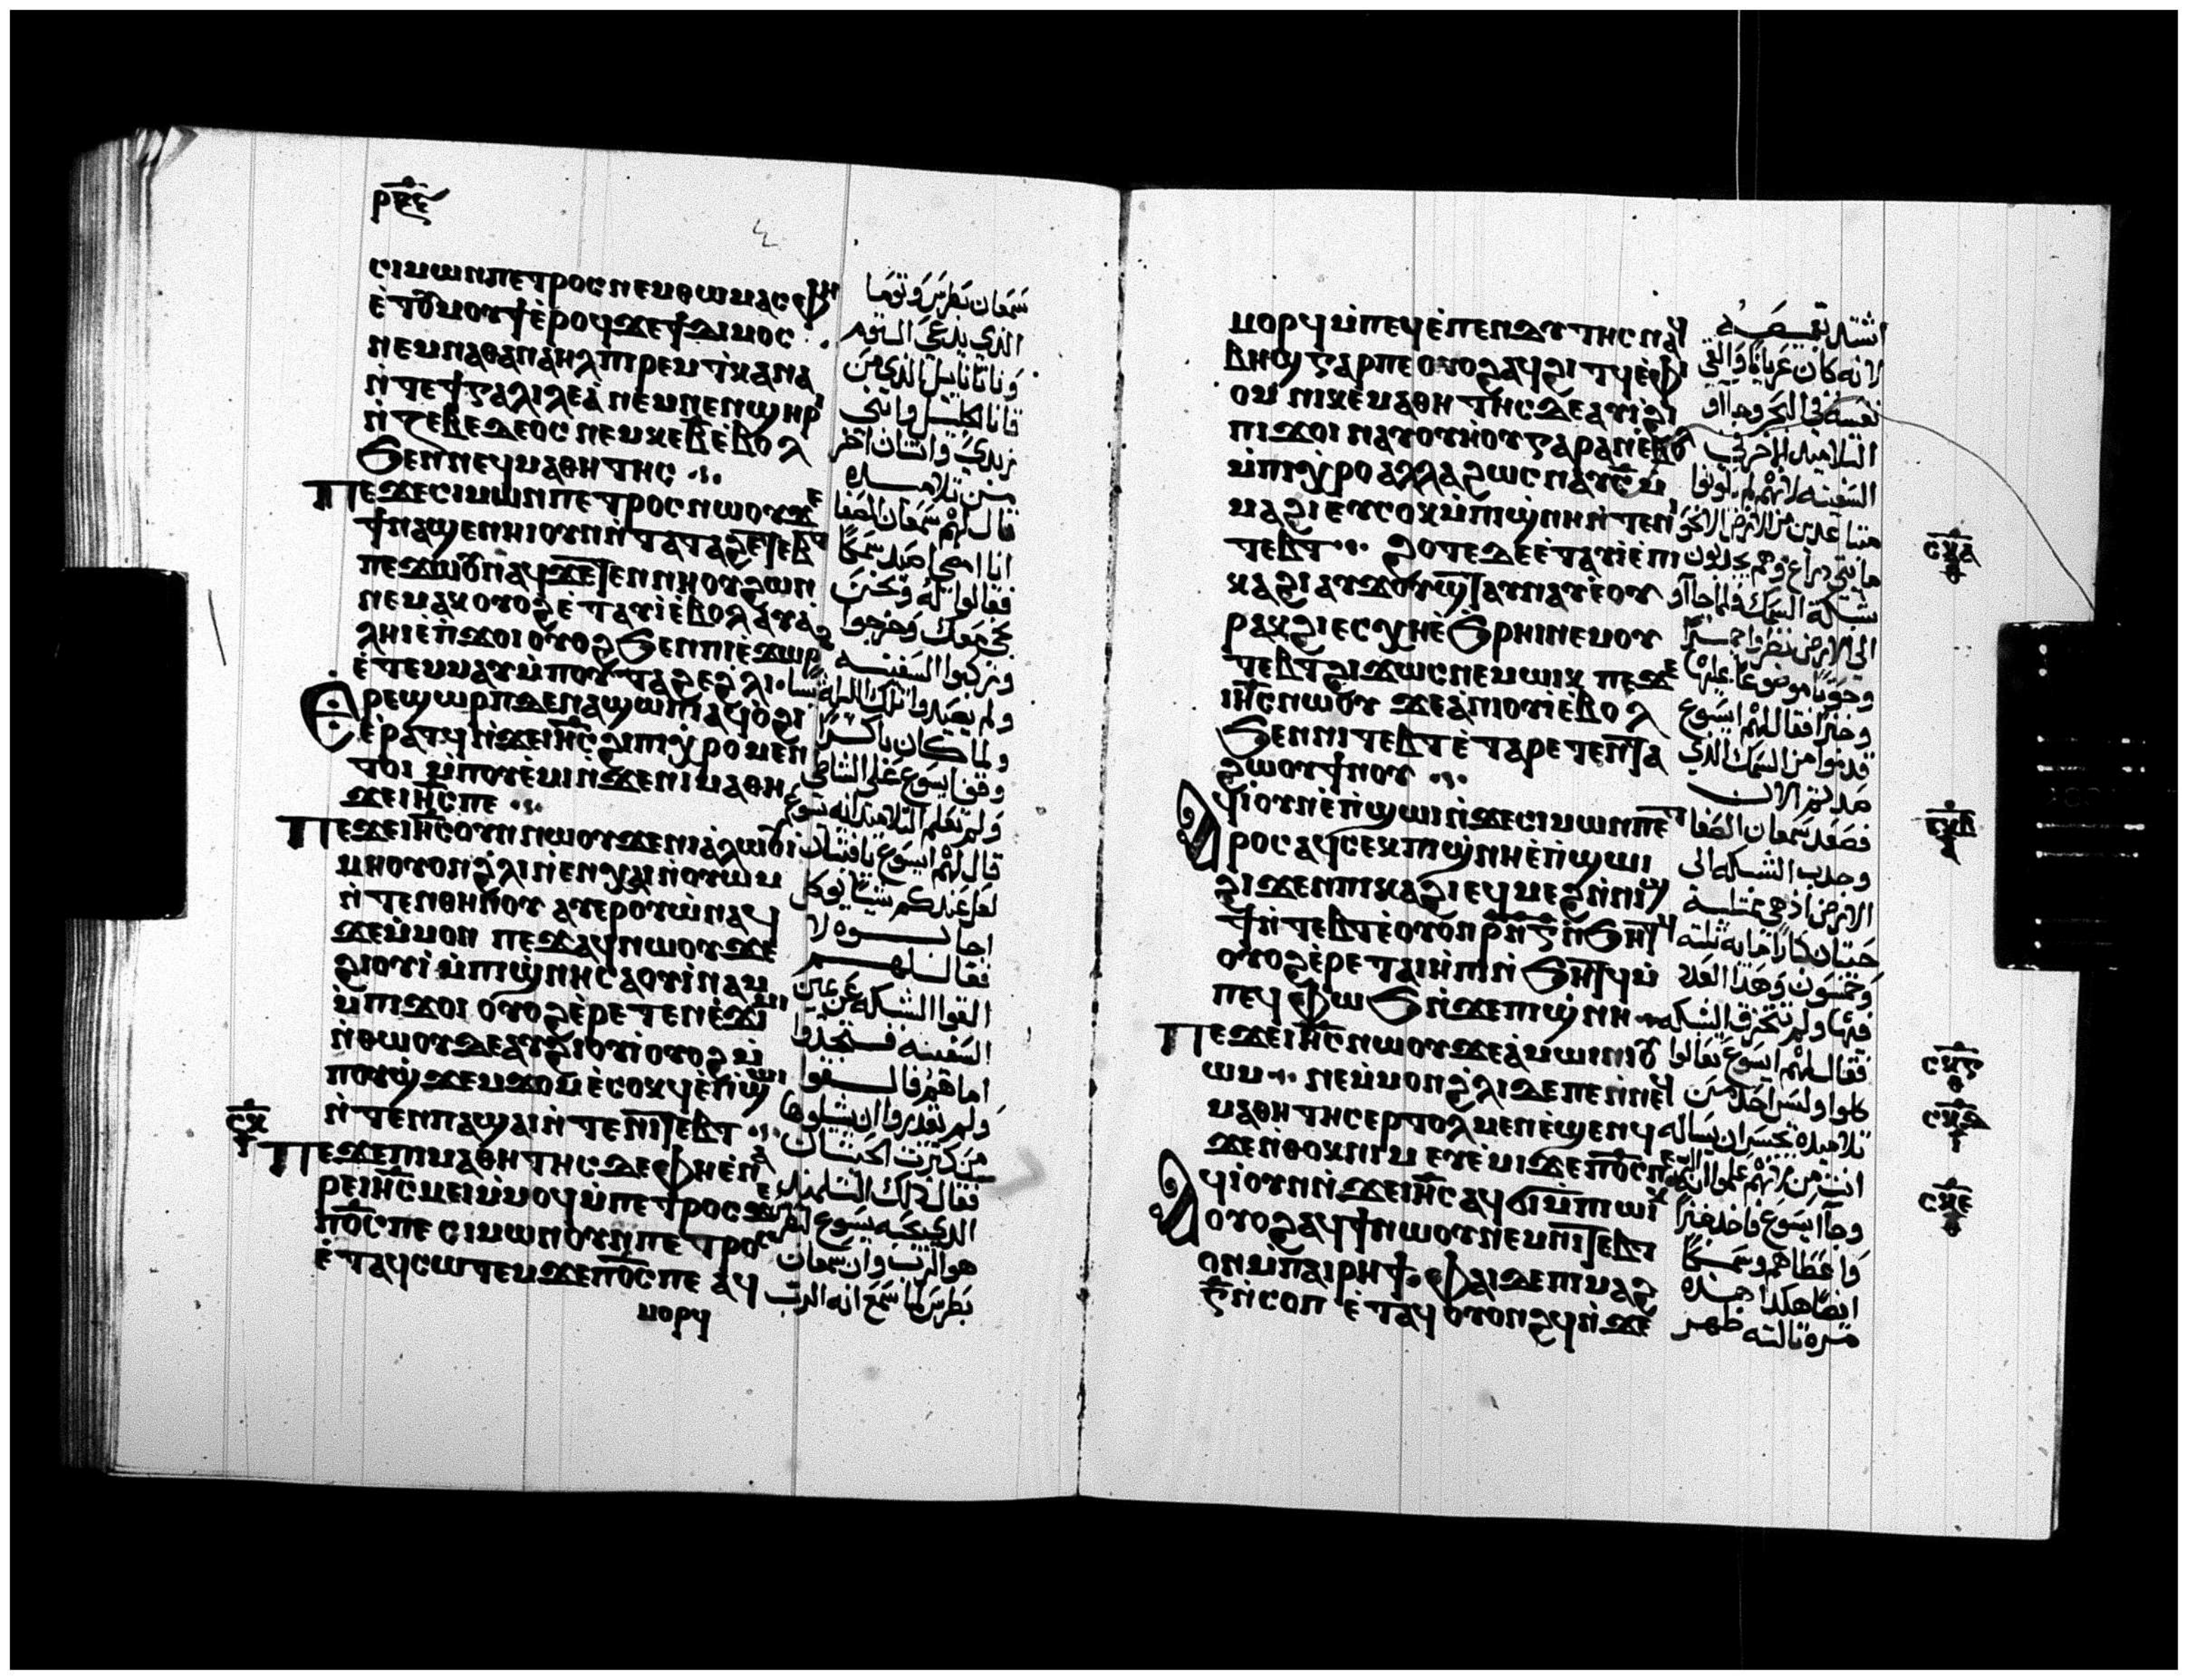 ⲣⲝⲉ
ⲥⲓⲙⲱⲛⲡⲉⲧⲣⲟⲥⲛⲉⲙⲑⲱⲙⲁⲥⲫⲏ
ⲉ̀ⲧⲟⲩⲙⲟⲩϯⲉ̀ⲣⲟϥϫⲉϯⲇⲓⲙⲟⲥ
ⲛⲉⲙⲛⲁⲑⲁⲛⲁⲏⲗⲡⲓⲣⲉⲙⲧ̀ⲕⲁⲛⲁ
ⲛ̀ⲧⲉϯⲅⲁⲗⲓⲗⲉⲁ̀ⲛⲉⲙⲛⲉⲛϣⲏⲣⲓ
ⲛ̀ⲍⲉⲃⲉⲇⲉⲟⲥⲛⲉⲙⲕⲉⲃ̅ⲉ̀ⲃⲟⲗ
ϧⲉⲛⲛⲉϥⲙⲁⲑⲏⲧⲏⲥ
ⲡⲉϫⲉⲥⲓⲙⲱⲛⲡⲉⲧⲣⲟⲥⲛⲱⲟⲩϫⲉ
ϯⲛⲁϣⲉⲛⲏⲓⲟⲩⲛⲛ̀ⲧⲁⲧⲁϩⲉⲧⲉⲃⲧ
ⲡⲉϫⲱⲟⲩⲛⲁϥϫⲉⲧⲉⲛⲛⲏⲟⲩϩⲱⲛ
ⲛⲉⲙⲁⲕⲟⲩⲟϩⲉ̀ⲧⲁⲩⲓ̀ⲉⲃⲟⲗⲁⲩⲁ̀
ⲗⲏⲓⲉ̀ⲡ̀ϫⲟⲓⲟⲩⲟϩϧⲉⲛⲡⲓⲉ̀ϫⲱⲣϩ
ⲉ̀ⲧⲉⲙⲙⲁⲩⲙ̀ⲡⲟⲩⲧⲁϩⲉϩ̀ⲗⲓ
ⲉ̀ⲣⲉϣⲱⲣⲡⲇⲉⲛⲁϣⲱⲡⲓⲁϥⲟ̀ϩⲓ
ⲉ̀ⲣⲁⲧϥⲛ̀ϫⲉⲓⲏ̅ⲥ̅ϩⲓⲡⲓⲭ̀ⲣⲟⲙⲉⲛ
ⲧⲟⲓⲙ̀ⲡⲟⲩⲉ̀ⲙⲓⲛ̀ϫⲉⲛⲓⲙⲁⲑⲏ
ϫⲉⲓⲏ̅ⲥ̅ⲡⲉ
ⲡⲉϫⲉⲓⲏ̅ⲥ̅ⲟⲩⲛⲛⲱⲟⲩϫⲉⲛⲓⲁ̀ⲗⲱⲟⲩⲓ
ⲙⲏⲟⲩⲟⲛϩ̀ⲗⲓⲛ̀ⲉⲛⲭⲁⲓⲛ̀ⲟⲩⲱⲙ
ⲛ̀ⲧⲉⲛⲑⲏⲛⲟⲩ ⲁⲩⲉⲣⲟⲩⲱ̀ⲛⲁϥ
ϫⲉⲙ̀ⲙⲟⲛ ⲡⲉϫⲁϥⲛⲱⲟⲩϫⲉ
ϩⲓⲟⲩⲓ̀ⲙ̀ⲡⲓϣ̀ⲛⲏⲥⲁⲟⲩⲓ̀ⲛⲁⲙ
ⲙ̀ⲡⲓϫⲟⲓ ⲟⲩⲟϩⲉ̀ⲣⲉⲧⲉⲛⲉ̀ϫⲓⲙⲓ
ⲛ̀ⲑⲱⲟⲩⲇⲉⲁⲩϩⲓⲟⲩⲓ̀ⲟⲩⲟϩⲙ̀
ⲡⲟⲩϣ̀ϫⲉⲙϫⲟⲙⲉ̀ⲥⲟⲕϥⲉ̀ⲡ̀ϣⲱⲓ
ⲛ̀ⲧⲉⲛⲡⲁϣⲁⲓⲛ̀ⲧⲉⲛⲓⲧⲉⲃⲧ
ⲥⲕ
ⲡⲉϫⲉⲡⲓⲙⲁⲑⲏⲧⲏⲥⲇⲉⲫⲏⲉ̀ⲛⲁ
ⲣⲉⲓⲏ̅ⲥ̅ⲙⲉⲓⲙ̀ⲙⲟϥⲙ̀ⲡⲉⲧⲣⲟⲥϫⲉ
ⲡⲟ̅ⲥ̅ⲡⲉ ⲥⲓⲙⲱⲛⲟⲩⲛⲡⲉⲧⲣⲟⲥ
ⲉ̀ⲧⲁϥⲥⲱⲧⲉⲙϫⲉⲡⲟ̅ⲥ̅ⲡⲉ ⲁϥ
ⲙⲟⲣϥ
سمعان بطرس وتوما
الذي يدعى التوم
وناتانايل الذي من
قانا الجليل وابني
زبدي واثنان اخر
من تلاميذه
قال لهم سمعان الصفا
انا امضي اصيد سمكا
فقالوا له ونحن
نجي معك وخرجوا
وركبوا السفينه
ولم يصيدوا تلك الليله شيا
ولما كان باكرا
وقف يسوع على الشاطي
ولم تعلم التلاميذ انه يسوع
قال لهم ايسوع يا فتيان
لعل عندكم شيا يوكل
اجابوه لا
فقال لهم
القوا الشبكه عن يمين
السفينه فستجدوا
اما هم فالقوا
ولم يقدروا ان يشيلوها
من كثرت الحيتان
فقال ذلك التلميذ
الذي يحبه يسوع لبطرس
هو الرب وان سمعان
بطرس لما سمع انه الرب
ⲙⲟⲣϥⲙ̀ⲡⲉϥⲉ̀ⲡⲉⲛⲇⲩⲧⲏⲥⲛⲁϥ
ⲃⲏϣⲅⲁⲣⲡⲉⲟⲩⲟϩⲁϥϩⲓⲧϥⲉ̀ⲫ
ⲓⲟⲙ ⲡⲓⲕⲉⲙⲁⲑⲏⲧⲏⲥⲇⲉⲁⲩⲓ̀ϩⲓ
ⲡⲓϫⲟⲓ ⲛⲁⲩⲟⲩⲏ̀ⲟⲩⲅⲁⲣⲁⲛⲉ̀ⲃⲟⲗ
ⲙ̀ⲡⲓⲭ̀ⲣⲟⲁⲗⲗⲁϩⲱⲥⲛⲁⲩⲥ̅ⲙ̀
ⲙⲁϩⲓⲉⲩⲥⲟⲕⲙ̀ⲡⲓϣ̀ⲛⲏⲛ̀ⲧⲉⲛⲓ
ⲧⲉⲃⲧ ϩⲟⲧⲉⲇⲉⲉ̀ⲧⲁⲩⲓ̀ⲉ̀ⲡⲓ
ⲕⲁϩⲓⲁⲩϫⲟⲩϣⲧⲁⲩⲛⲁⲩⲉ̀ⲟⲩ
ⲣⲁⲕϩⲓⲉⲥⲭⲏⲉ̀ϧⲣⲏⲓⲛⲉⲙⲟⲩ
ⲧⲉⲃⲧϩⲓϫⲱⲥⲛⲉⲙⲱⲓⲕ ⲡⲉϫⲉ
ⲓⲏ̅ⲥ̅ⲛⲱⲟⲩ ϫⲉⲁ̀ⲛⲓⲟⲩⲓ̀ⲉⲃⲟⲗ
ϧⲉⲛⲛⲓⲧⲉⲃⲧⲉ̀ⲧⲁⲣⲉⲧⲉⲛⲧⲁ
ϩⲱⲟⲩϯⲛⲟⲩ
ⲁϥⲓ̀ⲟⲩⲛⲉ̀ⲡ̀ϣⲱⲓⲛ̀ϫⲉⲥⲓⲙⲱⲛⲡⲉⲧ
ⲣⲟⲥⲁϥⲥⲉⲕⲡⲓϣ̀ⲛⲏⲉ̀ⲡ̀ϣⲱⲓ
ϩⲓϫⲉⲛⲡⲓⲕⲁϩⲓⲉϥⲙⲉϩⲛ̀ⲛⲓϣ
ϯⲛ̀ⲧⲉⲃⲧⲉ̀ⲟⲩⲟⲛⲣ̅ⲛ̅ⲅ̅ⲛ̀ϧⲏⲧϥ
ⲟⲩⲟϩⲉ̀ⲣⲉⲧⲁⲓⲏ̀ⲡⲓⲛ̀ϧⲏⲧϥⲙ̀
ⲡⲉϥⲫⲱϧⲛ̀ϫⲉⲡⲓϣ̀ⲛⲏ
ⲡⲉϫⲉⲓⲏ̅ⲥ̅ⲛⲱⲟⲩϫⲉⲁ̀ⲙⲱⲓⲛⲓⲟⲩ
ⲱⲙ ⲛⲉⲙ̀ⲙⲟⲛϩ̀ⲗⲓⲇⲉⲡⲉⲛⲛⲉϥ
ⲙⲁⲑⲏⲧⲏⲥⲉⲣⲧⲟⲗⲙⲉⲛⲉ̀ϣⲉⲛϥ
ϫⲉⲛ̀ⲑⲟⲕⲛⲓⲙ ⲉⲩⲉ̀ⲙⲓϫⲉⲡⲟ̅ⲥ̅ⲡⲉ
ⲁϥⲓ̀ⲟⲩⲛⲛ̀ϫⲉⲓⲏ̅ⲥ̅ⲁϥϭⲓⲙ̀ⲡⲓⲱⲓⲕ
ⲟⲩⲟϩⲁϥϯⲛⲱⲟⲩⲛⲉⲙⲡⲓⲧⲉⲃⲧ
ⲟⲛⲙ̀ⲡⲁⲓⲣⲏϯ ⲫⲁⲓⲇⲉⲡⲓⲙⲁϩ
ⲅ̅ⲛ̀ⲥⲟⲡ ⲉ̀ⲧⲁϥⲟⲩⲟⲛϩϥⲛ̀ϫⲉ
اتشتد بقميصه
لانه كان عريانا والقى
نفسه في البحر وجاآو
التلاميذ الاخر في
السفينه لانهم لم يكونوا
متباعدين من الارض الا نحو
مايتي ذراع وهم يجذبون
شبكة السمك فلما جاآو
الي الارض نظروا جمرا
وحوتا موضوعا عليها
وخبزا فقال لهم ايسوع
قدموا من السمك الذي
صدتم الان
فصعد سمعان الصفا
وجذب الشبكه الى
الارض اذ هي ممتليه
حيتان كبارا مايه ثلثه
وخمسون وهذا العدد
فيها ولم تتخرق الشبكه
فقال لهم ايسوع تعالوا
كلوا وليس احد من
تلاميذه يجسر ان يساله
انت من لانهم علموا انه الرب
وجاآ يسوع فاخذ خبزا
واعطاهم وسمكا
ايضا هكذا هذه
مره ثالثه ظهر
ⲥⲕⲁ
ⲥⲕⲃ
ⲥⲕⲅ
ⲥⲕⲇ
ⲥⲕⲉ